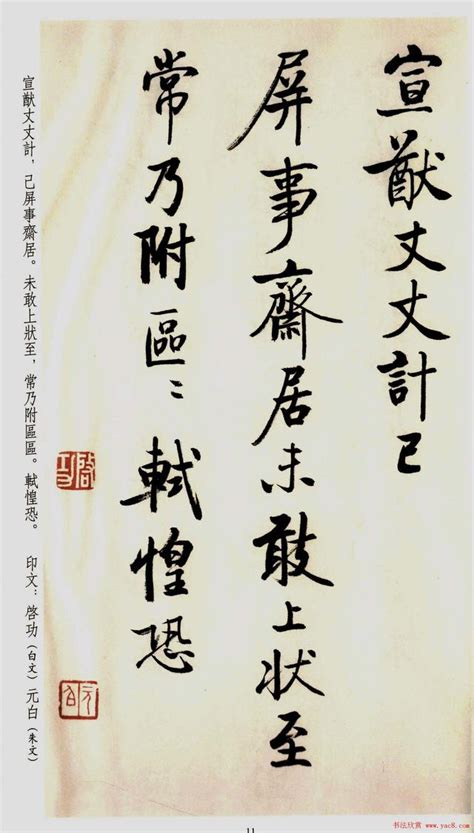 宣猷丈丈計已
屏事齋居未敢上狀至
常乃附區〻軾惶恐
啓功
元白
宣猷丈丈計，已屏事齋居。未敢上狀至，常乃附區區。軾惶恐。 印文：啓功（白文）元白（朱文）
11
书法欣赏 www.yac8.com